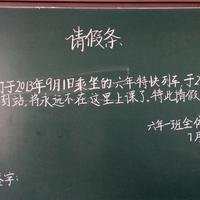 请假条
们于2013年9月1日乘坐的六年特快列车,于2
到站,将永远不在这里上课了,特此请假
六年一班全体
7月
签字: